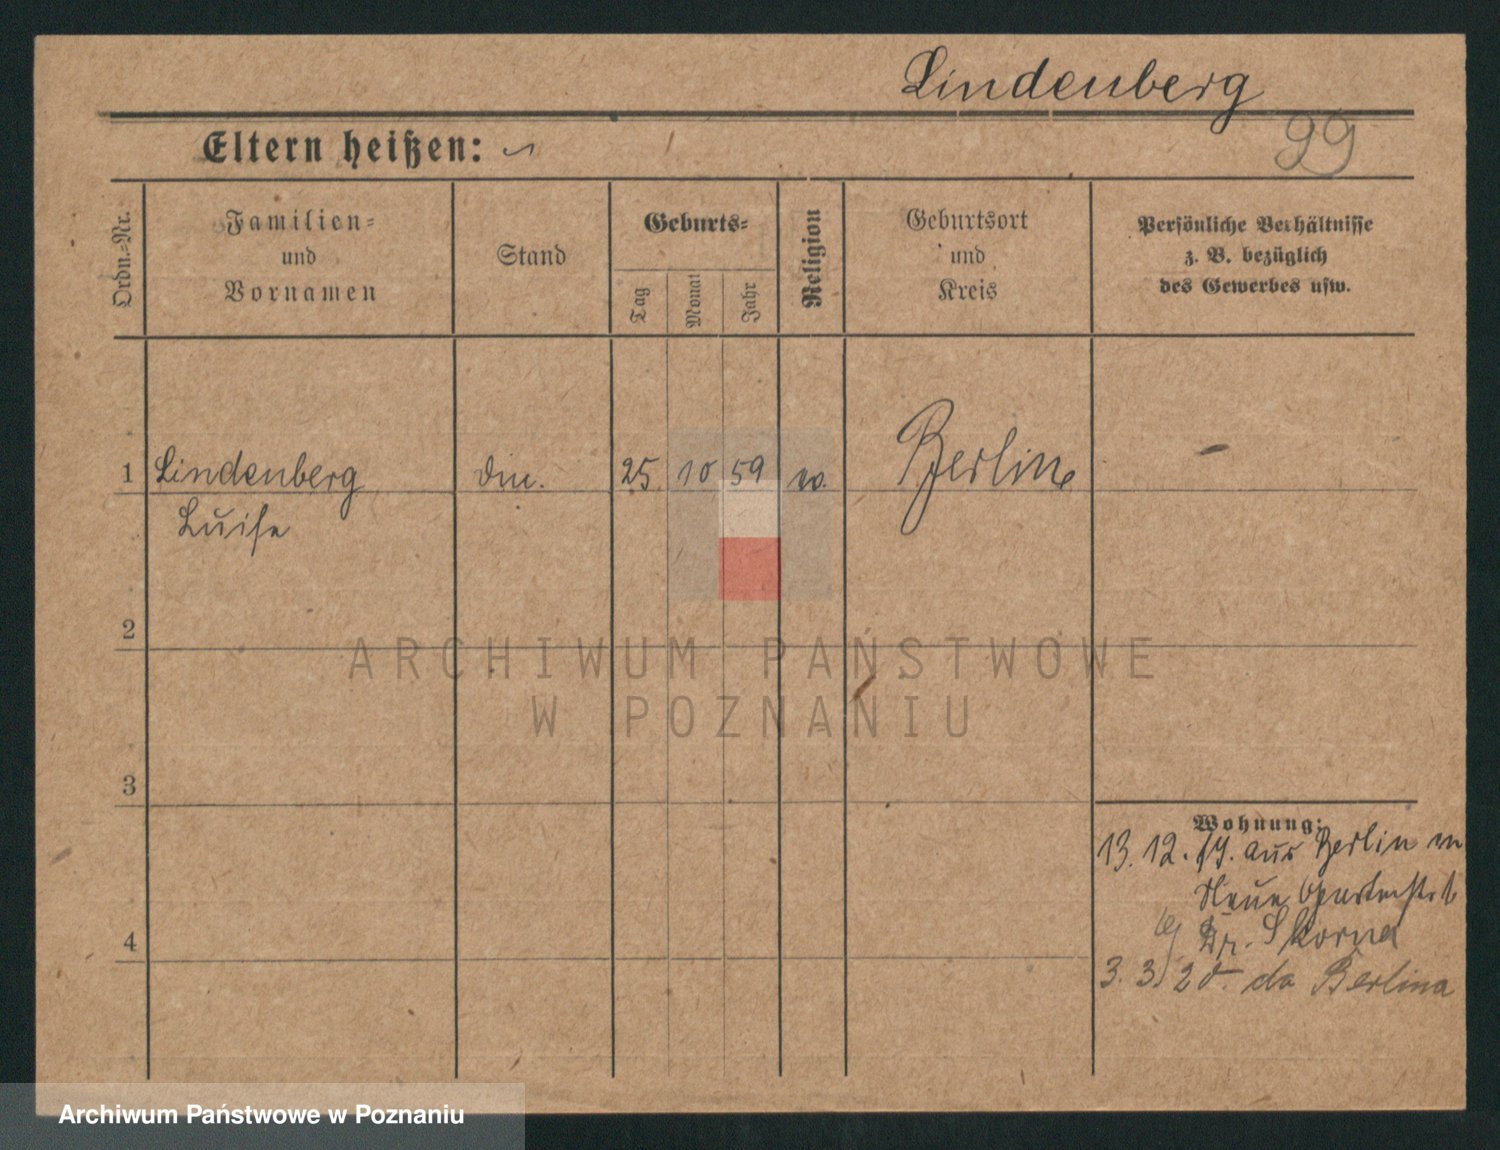 Lindenberg
99
Eltern heißen:
Ordn.-Nr.
Familien-
und
Vornamen
Stand
Geburts-
Tag
Monat
Jahr
Religion
Geburtsort
und
Kreis
Persönliche Verhältnisse
z. B. bezüglich
des Gewerbes usw.
1 Lindenberg 25 10 59 Berlin
Luise
2
3
4
Wohnung:
13. 12. 19. aus Berlin
Neue
Dr. Skorna
3. 3. 20. do Berlina
ARCHIWUM PAŃSTWOWE
W POZNANIU
Archiwum Państwowe w Poznaniu